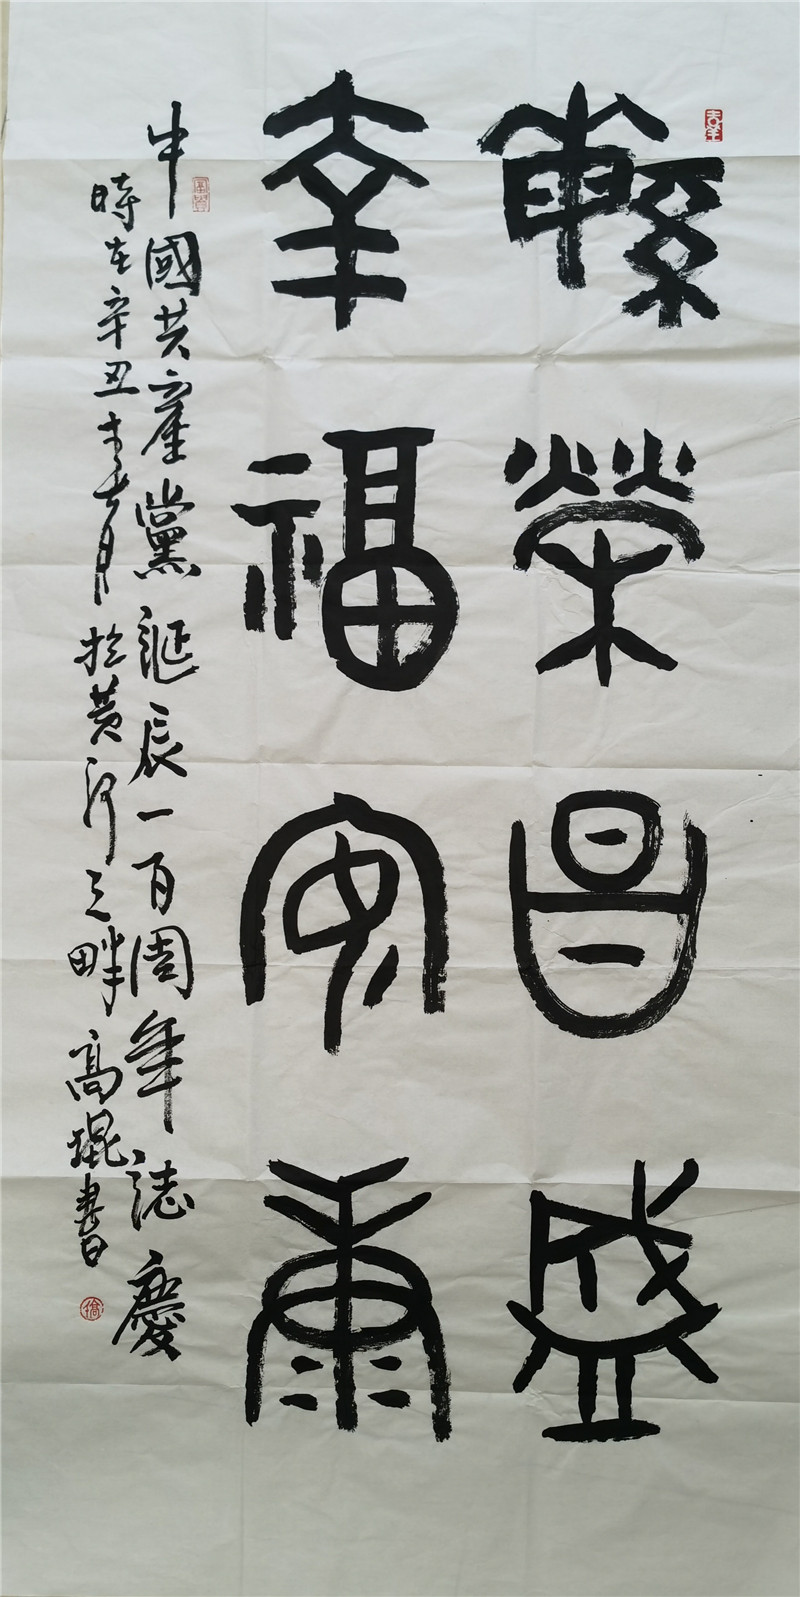 繁榮昌盛
幸福安康
中國共產黨誕辰一百周年誌慶
時在辛丑七月於黃河之畔高琨書